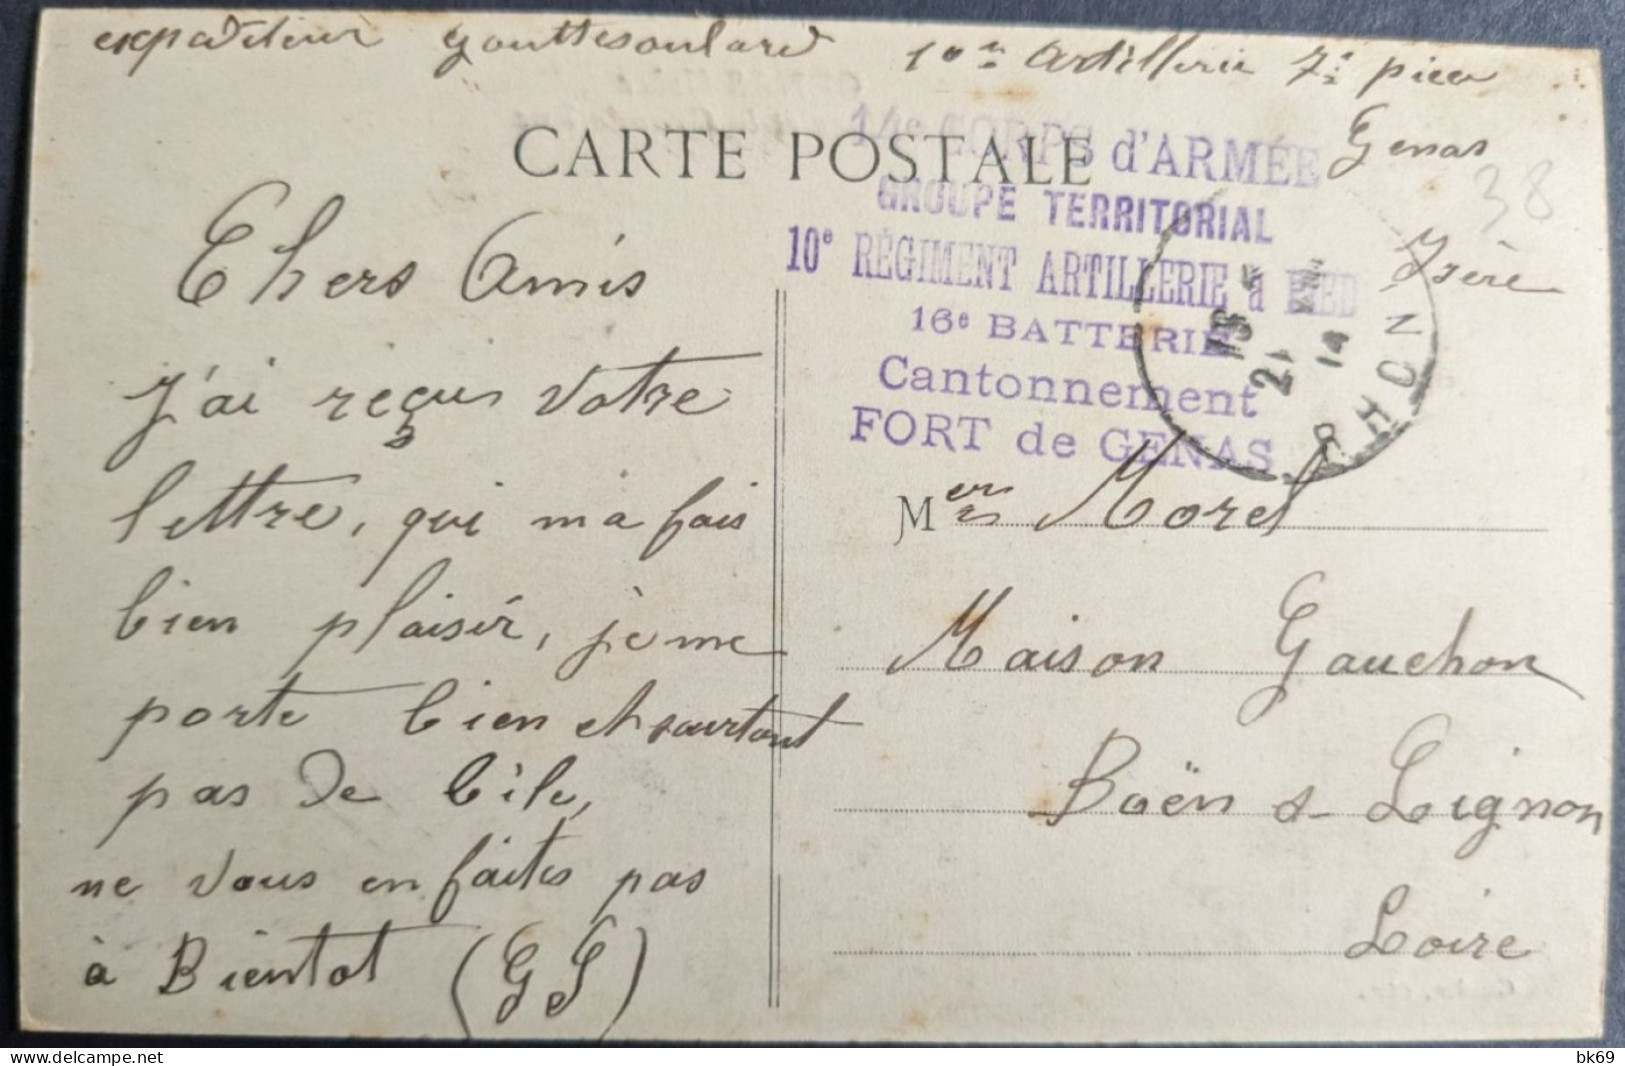 expediteur Gouttesoulard 10me Artillerie 7e piece
Genas
Isère
38
CARTE POSTALE
14e CORPS d'ARMÉE
GROUPE TERRITORIAL
10e RÉGIMENT ARTILLERIE à PIED
16e BATTERIE
Cantonnement
FORT de GENAS
RHONE
21
14
Chers Amis
J'ai reçus votre
lettre, qui m'a fais
bien plaisir, je me
porte bien et sourtout
pas de bile,
ne vous en faites pas
à Bientot (G S)
Mers Morel
Maison Gauchon
Boën s- Lignon
Loire
bk69